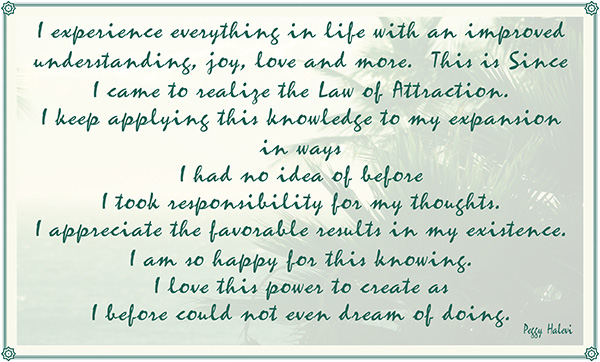 I experience everything in life with an improved
understanding, joy, love and more. This is Since
I came to realize the Law of Attraction.
I keep applying this knowledge to my expansion
in ways
I had no idea of before
I took responsibility for my thoughts.
I appreciate the favorable results in my existence.
I am so happy for this knowing.
I love this power to create as
I before could not even dream of doing.
Peggy Halevi